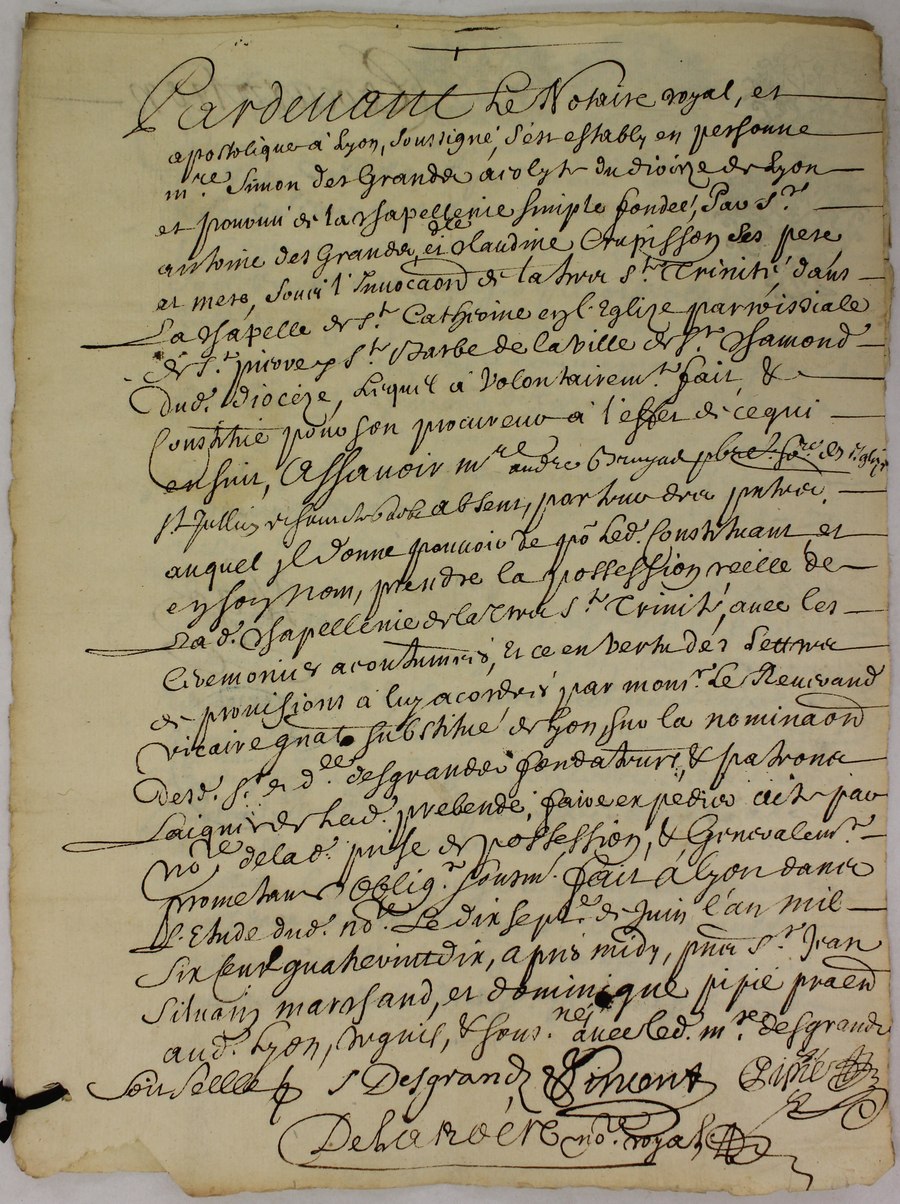 Pardevant Le Notaire royal, et
apostolique a Lyon, soussigné, s'est estably en personne
m.re Simon des Grandes acolyte du diocèze de Lyon
et pourvu de la chapellenie simple fondeé, Par s.r
antoine des Grandes, et d.lle Claudine Crupisson ses pere
et mere, soubz l'Invocaon de la tres s.te Trinité, dans
La chapelle de s.te Catherine en l'Eglise parroissiale
de s.t pierre s.te Barbe de la ville de s.t Chamond
dud. diocèze, Lequel a volontairem.t fait, &
Constitué pour son procureur a l'effet de ce qui
ensuit, Assavoir m.re andré pbre
s.t Jullien absent, par
auquel jl donne pouvoir de po.r Led. Constituant, et
en son Nom, prendre la possession reelle de
Lad. Chapellenie de la tres s.te Trinité, avec les
Ceremonies acoutumeés, Et ce en vertu des Lettres
de provisions a luy acordeés par mons.r Le Reverand
vicaire gnal substitué de Lyon, sur la nominaon
desd. s.r & d.lle desgrandes fondateurs, & patrons
Laiques de Lad. prebende, faire expedier acte par
no.re de lad. prise de possession, & Generalem.t
prometant Oblig.t soubm. fait a Lyon dans
L'Etude dud. no.re Le dix sept.e de Juin l'an mil
six cent quatre vint dix, apres midy, pnts s.r Jean
marchand, et dominique pipié praen
aud. Lyon, requis, & sous.nés avec led. m.re desgrandes
S Desgrandes Simont Pipié
no.re royal